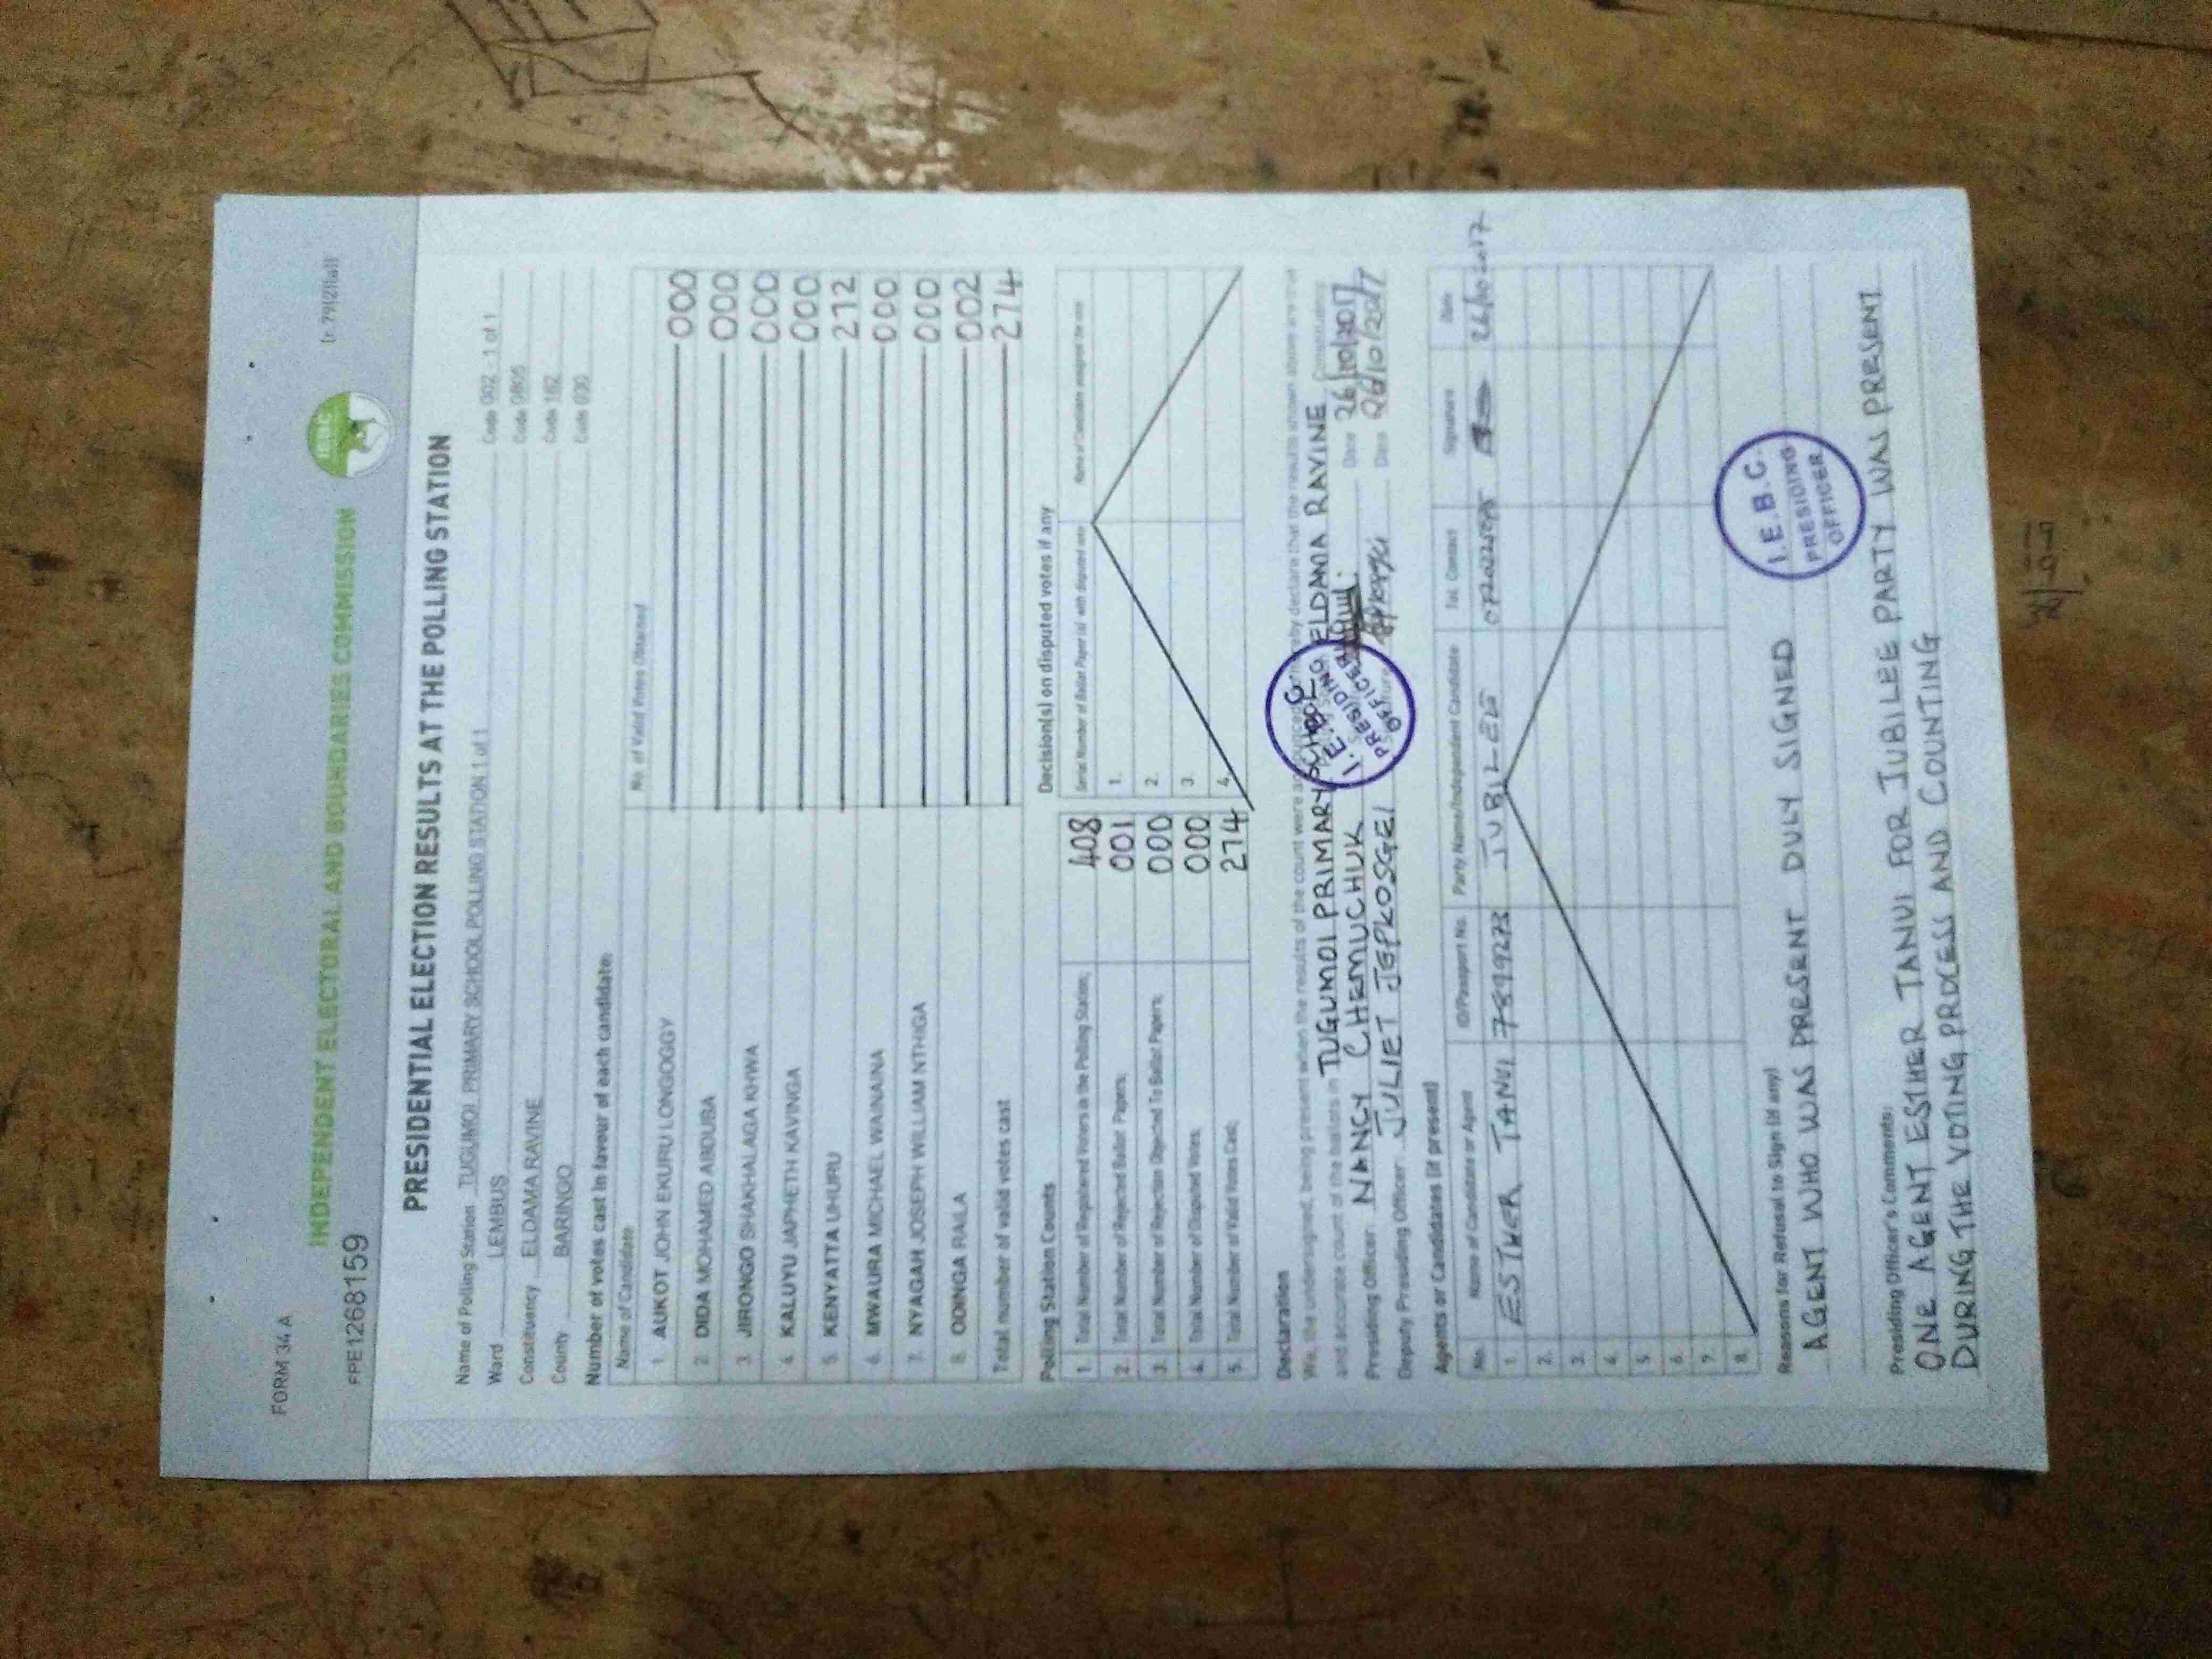 FORM 34 A
(r. 79(2)(a))
INDEPENDENT ELECTORAL AND BOUNDARIES COMMISSION
IEBC
FPE1268159
PRESIDENTIAL ELECTION RESULTS AT THE POLLING STATION
Name of Polling Station TUGUMOI PRIMARY SCHOOL POLLING STATION 1 of 1 Code 002 - 1 of 1
Ward LEMBUS Code 0805
Constituency ELDAMA RAVINE Code 162
County BARINGO Code 030
Number of votes cast in favour of each candidate:
Name of Candidate No. of Valid Votes Obtained
1. AUKOT JOHN EKURU LONGOGGY 000
2. DIDA MOHAMED ABDUBA 000
3. JIRONGO SHAKHALAGA KHWA 000
4. KALUYU JAPHETH KAVINGA 000
5. KENYATTA UHURU 212
6. MWAURA MICHAEL WAINAINA 000
7. NYAGAH JOSEPH WILLIAM NTHIGA 000
8. ODINGA RAILA 002
Total number of valid votes cast 274
Polling Station Counts
1. Total Number of Registered Voters in the Polling Station; 408
2. Total Number of Rejected Ballot Papers; 001
3. Total Number of Rejection Objected To Ballot Papers; 000
4. Total Number of Disputed Votes; 000
5. Total Number of Valid Votes Cast; 274
Decision(s) on disputed votes if any
Serial Number of Ballot Paper(s) with disputed vote Name of Candidate assigned the vote
1.
2.
3.
4.
Declaration
We, the undersigned, being present when the results of the count were declare that the results shown above are true
and accurate count of the ballots in TUGUMOI PRIMARY SCHOOL ELDAMA RAVINE Constituency
Presiding Officer: NANCY CHEMUCHUK Date 26/10/2017
Deputy Presiding Officer: JULIET JEPKOSGEI Date 26/10/2017
I.E.B.C
PRESIDING
OFFICER
Agents or Candidates (if present)
No. Name of Candidate or Agent ID/Passport No. Party Name/Independent Candidate Tel. Contact Signature Date
1. ESTHER TANUI 7899273 JUBILEE 26/10/2017
2.
3.
4.
5.
6.
7.
8.
Reasons for Refusal to Sign (if any)
AGENT WHO WAS PRESENT DULY SIGNED
I.E.B.C.
PRESIDING
OFFICER
Presiding Officer's Comments:
ONE AGENT ESTHER TANUI FOR JUBILEE PARTY WAS PRESENT
DURING THE VOTING PROCESS AND COUNTING